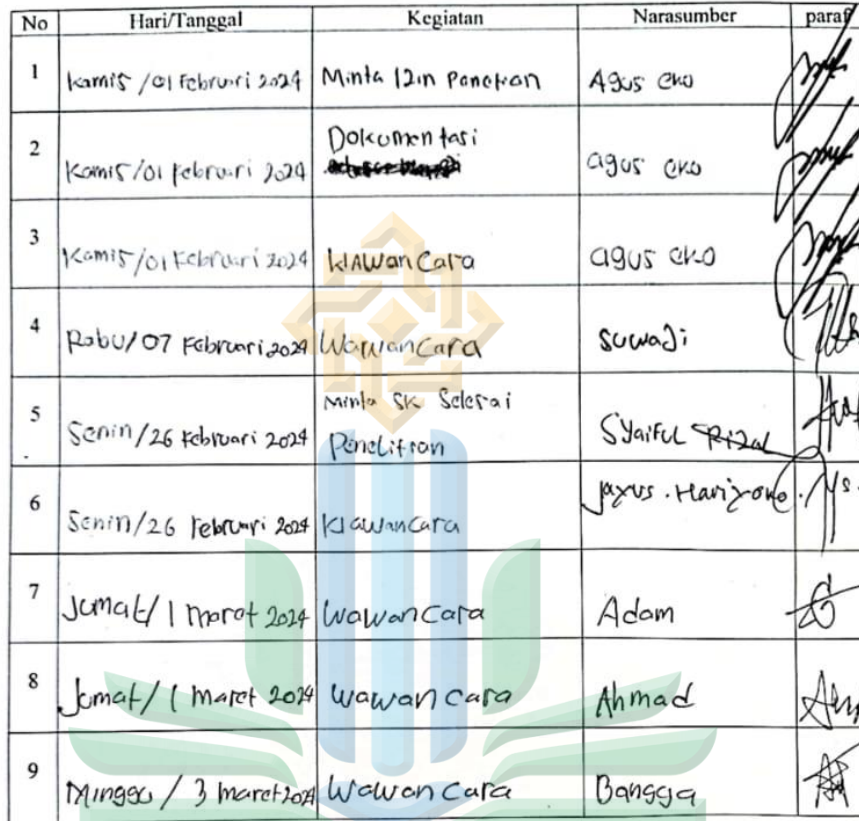 No Hari/Tanggal Kegiatan Narasumber paraf
1 Kamis /01 Februari 2024 Minta Izin Penelitian Agus eko
2 Kamis/01 Februari 2024 Dokumentasi agus eko
3 Kamis/01 Februari 2024 Wawancara agus eko
4 Rabu/07 Februari 2024 Wawancara Suwaji
5 Senin/26 Februari 2024 Minta SK Selesai
Penelitian Syaiful Rizal
6 Senin/26 Februari 2024 Wawancara Jayus . Hariyono.
7 Jumat/ 1 maret 2024 Wawancara Adam
8 Jumat/ 1 maret 2024 wawancara Ahmad
9 Minggu / 3 maret 2024 Wawancara Bangga